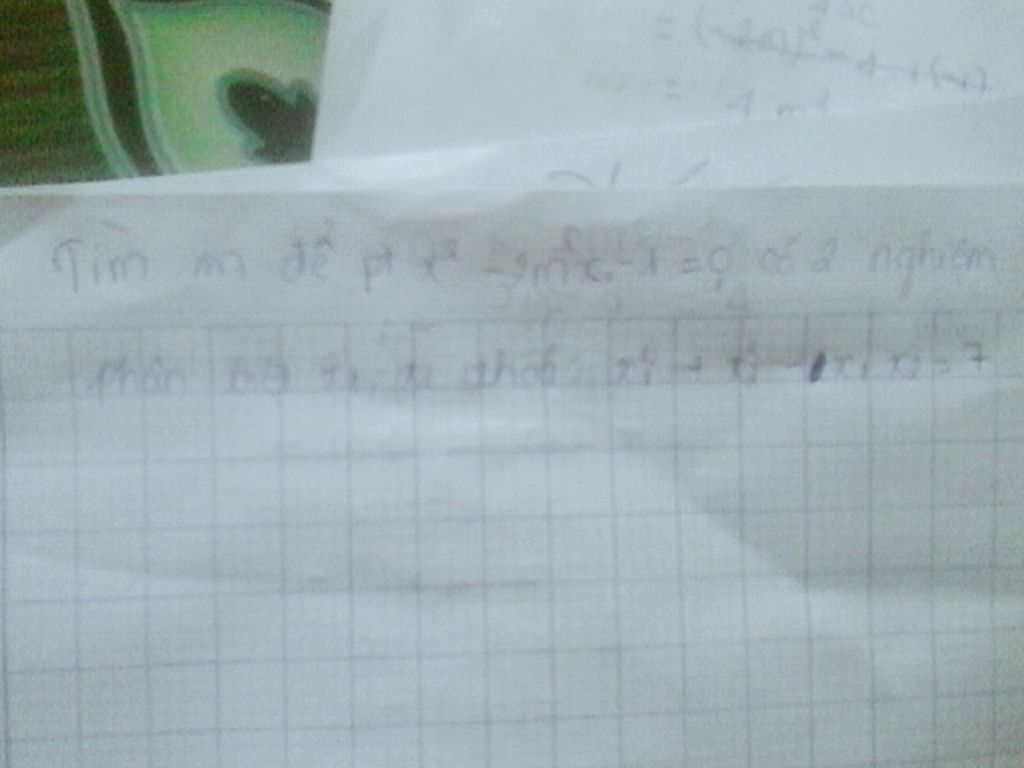 = (-2m)² - 4.1.(-1)
= 4 m²
Tìm m để pt x² - 2m x - 1 = 0 có 2 nghiệm
phân biệt x₁, x₂ thoả: x₁² + x₂² - x₁x₂ = 7